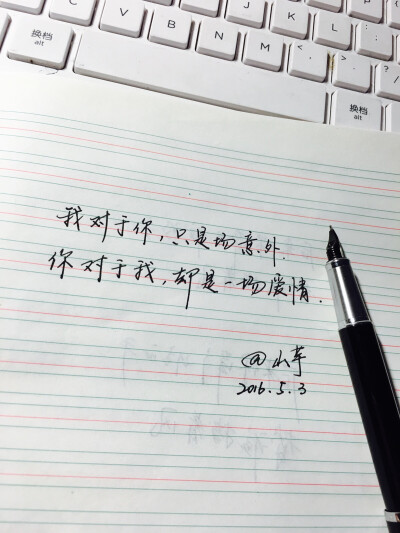 C V B N M
换档
alt
换档
alt
我对于你,只是场意外.
你对于我,却是一场爱情.
@山芋
2016.5.3